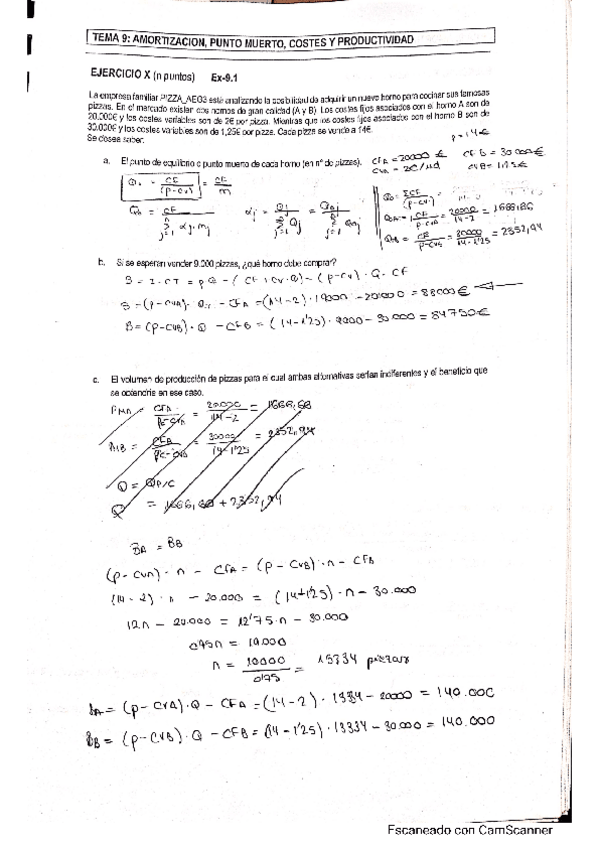 TEMA 9: AMORTIZACION, PUNTO MUERTO, COSTES Y PRODUCTIVIDAD
EJERCICIO X (n puntos) Ex-9.1
La empresa familiar PIZZA_AEG3 está analizando la posibilidad de adquirir un nuevo horno para cocinar sus famosas
pizzas. En el mercado existen dos hornos de gran calidad (A y B). Los costes fijos asociados con el horno A son de
20.000€ y los costes variables son de 2€ por pizza. Mientras que los costes fijos asociados con el horno B son de
30.000€ y los costes variables son de 1,25€ por pizza. Cada pizza se vende a 14€.
Se desea saber: p = 14€
a. El punto de equilibrio o punto muerto de cada horno (en nº de pizzas). CFA = 20000 € CFB = 30000€
CVA = 2€/ud CVB = 1'25€
= CF/(p-cv) = CF/m
QA = CF/(p-CVA) = 20000/14-2 = 1666,66
QB = CF/(p-CVB) = 30000/14-1'25 = 2352,94
b. Si se esperan vender 9.000 pizzas, ¿qué horno debe comprar?
B = I - CT = p·Q - (CF + CV·Q) = (p-CV)·Q - CF
B = (p-CVA)·Q - CFA = (14-2)·9000 - 20000 = 88000€
B = (p-CVB)·Q - CFB = (14-1'25)·9000 - 30000 = 84750€
c. El volumen de producción de pizzas para el cual ambas alternativas serían indiferentes y el beneficio que
se obtendría en ese caso.
CFA/pc-cvA = 20000/14-2 = 1666,66
CFB/pc-cvB = 30000/14-1'25 = 2352,94
Q = QP/C
Q = 1666,66 + 2352,94
BA = BB
(p-CVA)·n - CFA = (p-CVB)·n - CFB
(14-2)·n - 20.000 = (14-1'25)·n - 30.000
12n - 20.000 = 12'75·n - 30.000
0'75n = 10.000
n = 10000/0'75 = 13334 pizzas
BA = (p-CVA)·Q - CFA = (14-2)·1334 - 20000 = 140.000
BB = (p-CVB)·Q - CFB = (14-1'25)·13334 - 30.000 = 140.000
Escaneado con CamScanner